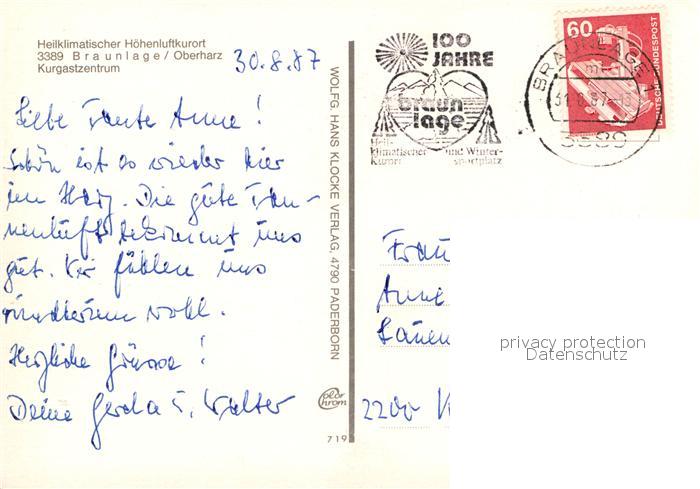 Heilklimatischer Höhenluftkurort
3389 Braunlage/Oberharz
Kurgastzentrum
30.8.87
Liebe Tante Anne!
Schön ist es wieder hier
im Harz. Die gute Tan-
nenluft bekommt uns
gut. Wir fühlen uns
rundherum wohl.
Herzliche Grüsse!
Deine Gerda u. Walter
WOLFG. HANS KLOCKE VERLAG, 4790 PADERBORN
color
chrom
719
100
JAHRE
braun
lage
Heil-
klimatischer und Winter-
Kurort sportplatz
BRAUNLAGE
3389
60
DEUTSCHE BUNDESPOST
Frau
Anne
2200
privacy protection
Datenschutz